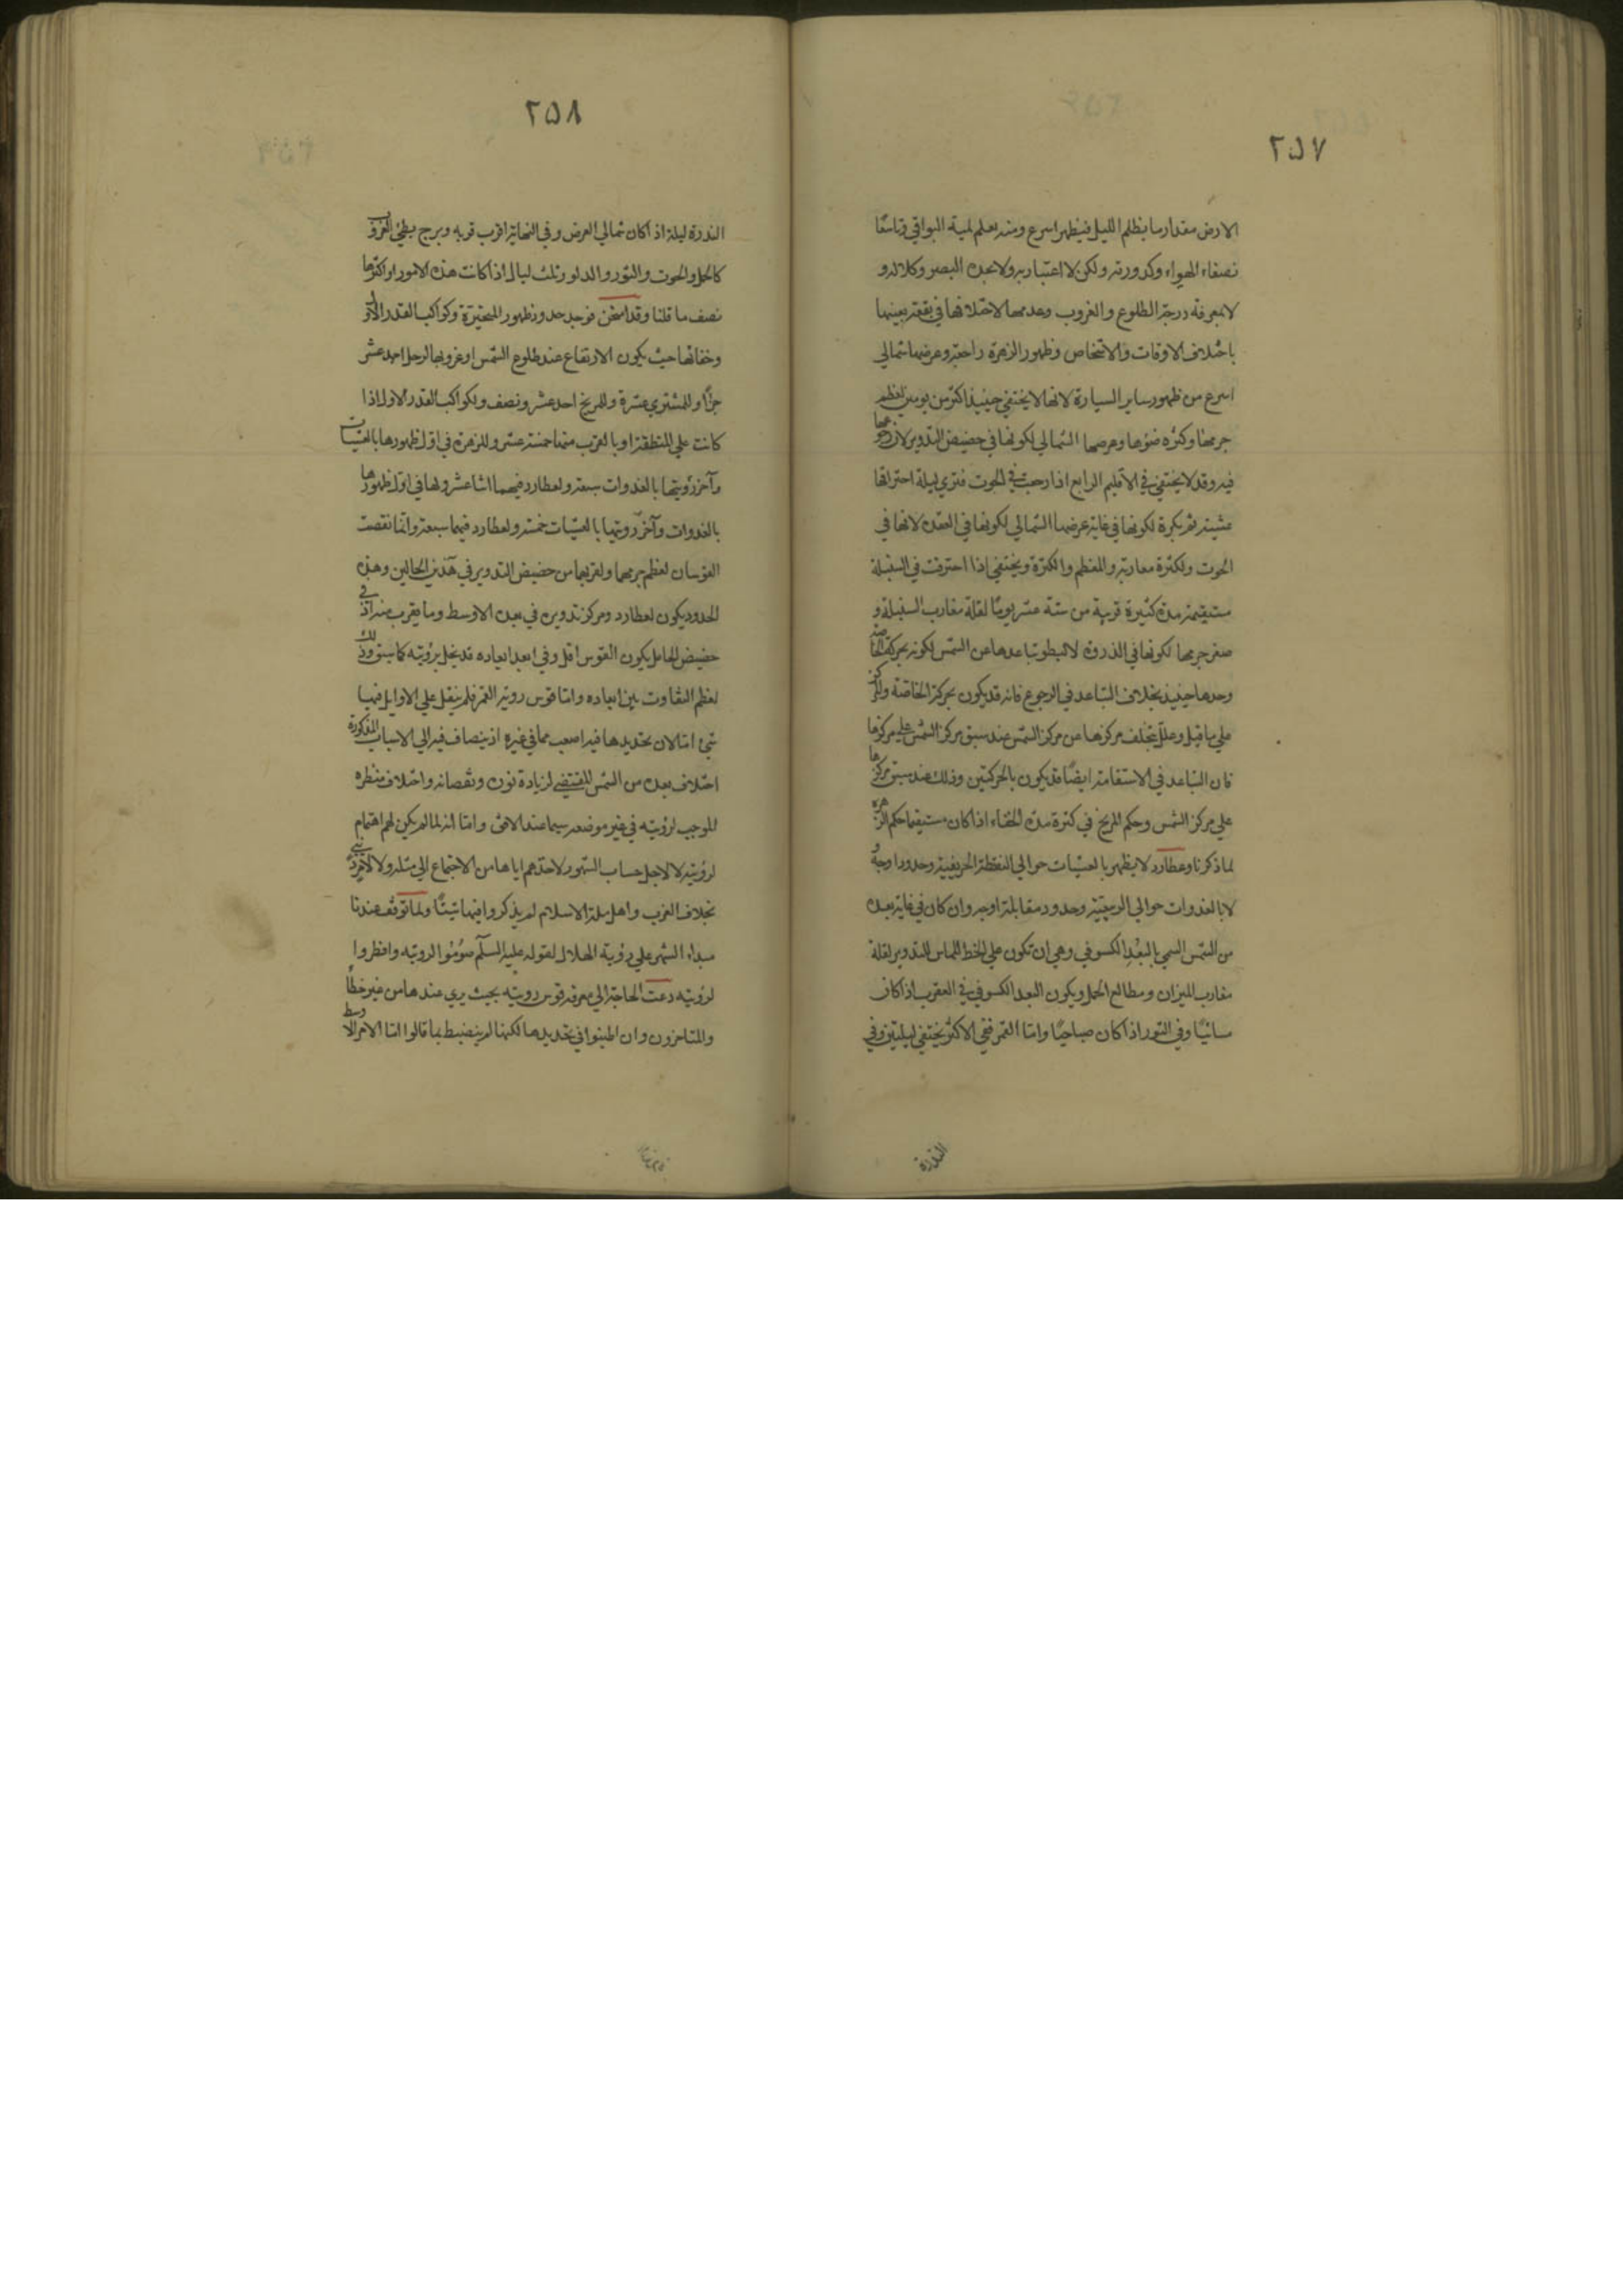 ٢٥٧
الارض مقدار ما يظلم الليل فيظهر اسرع ومنه يعلم لمية البواقي وتاسعًا
بصفاء الهواء وكدورته ولكن لا اعتبار به ولا بحدة البصر وكلاله و
لا بمعرفة درجة الطلوع والغروب وعدمها لاختلافها في بقعة بعينها
باختلاف الاوقات والاشخاص وظهور الزهرة راجعة وعرضها شمالي
اسرع من ظهور ساير السيارة لانها لا يختفي حينيذ اكثر من يومين لعظم
جرمها وكثره ضوءها وعرضها الشمالي لكونها في حضيض التدوير لان رجوعها
فيه وقد لا يختفي في الاقليم الرابع اذا رجعت في الحوت فتري ليلة احتراقها
عشية ثم بكرة لكونها في غاية عرضها الشمالي لكونها في العقدة لانها في
الحوت ولكثرة مغاربه وللعظم والكثرة ويختفي اذا احترقت في السنبلة
مستقيمة مدة كثيرة قريبة من ستة عشر يومًا لقلة مغارب السنبلة و
صغر جرمها لكونها في الذروة لا لبطو تباعدها عن الشمس لكونه بحركة الخاصة
وحدها حينيذ بخلاف التباعد في الرجوع فانه قد يكون بحركة الخاصة والمركز
علي ما قيل وعلل بتخلف مركزها عن مركز الشمس عند سبق مركز الشمس علي مركزها
فان التباعد في الاستقامة ايضًا قد يكون بالحركتين وذلك عند سبق مركزها
علي مركز الشمس وحكم المريخ في كثرة مدة الخفاء اذا كان مستقيما حكم الزهرة
لما ذكرنا وعطارد لا يظهر بالعشيات حوالي النقطة الخريفية وحدود اوجه و
لا بالغدوات حوالي الربيعية وحدود مقابلة اوجه وان كان في غاية بعده
من الشمس المسمي بالبعد الكسوفي وهي ان تكون علي الخط المماس للتدوير لقلة
مغارب الميزان ومطالع الحمل ويكون البعد الكسوفي في العقرب اذا كان
مسائيًا وفي الثور اذا كان صباحيًا واما القمر ففي الاكثر يختفي ليلتين وفي
الندرة
٢٥٨
الندرة ليلة اذا كان شمالي العرض وفي النهاية اقرب قربه وبرج بطئ الغروب
كالحمل والحوت والثور والدلو وثلث ليال اذا كانت هذه الامور او اكثرها
نصف ما قلنا وقد امتحن فوجد حدود ظهور المتحيرة وكواكب القدر الاول
وخفائها حيث يكون الارتفاع عند طلوع الشمس او غروبها لزحل احد عشر
جزًا وللمشتري عشرة وللمريخ احد عشر ونصف ولكواكب القدر الاول اذا
كانت علي المنطقة او بالقرب منها خمسة عشر وللزهرة في اول ظهورها بالعشيات
وآخر رؤيتها بالغدوات سبعة ولعطارد فيهما اثنا عشر ولها في اول ظهورها
بالغدوات وآخر رويتها بالعشيات خمسة ولعطارد فيهما سبعة وانما نقصت
القوسان لعظم جرمهما ولقربهما من حضيض التدوير في هذين الحالين وهذه
الحدود يكون لعطارد ومركز تدويره في بعده الاوسط وما يقرب منه اذ في
حضيض الحامل يكون القوس اقل وفي ابعد ابعاده قد يخل برؤيته كما سبق وذلك
لعظم التفاوت بين ابعاده واما قوس رويه القمر فلم ينقل علي الاوايل فيها
شئ اما لان تحديدها فيه اصعب مما في غيره اذ ينضاف فيه الي الاسباب المذكورة
اختلاف بعده من الشمس المقتضي لزيادة نوره ونقصانه واختلاف منظره
الموجب لرؤيته في غير موضعه سيما عند الافق واما انه لما لم يكن لهم اهتمام
لرؤيته لا لاجل حساب الشهور لاخذهم اياها من الاجتماع الي مثله ولا لامر ديني
بخلاف العرب واهل ملة الاسلام لم يذكروا فيها شيئًا ولما توقف عندنا
مبداء الشهر علي رؤية الهلال لقوله عليه السلم صوموا لرويته وافطروا
لرؤيته دعت الحاجة الي معرفة قوس رويته بحيث يري عندها من غير خطأ
والمتاخرون وان اطنبوا في تحديدها لكنها لم ينضبط بما قالوا اما الامر الاوسط